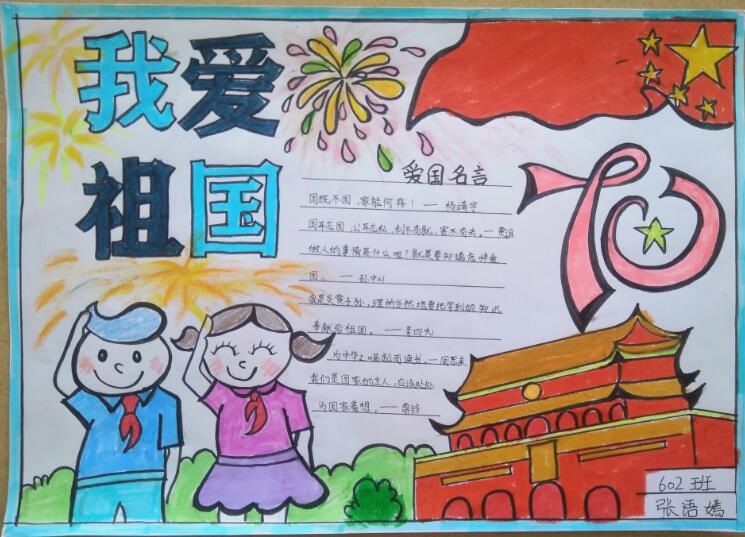 我爱
祖国
70
爱国名言
国既不国，家能何存！——杨靖宇
国耳忘因，公耳忘私，利不苟就，害不苟去。—贾谊
做人的事情是什么呢？就是要知道怎样爱
国。——孙中山
我是炎黄子孙，理所当然地要把学到的知识
奉献给祖国。——李四光
为中华之崛起而读书。—周恩来
我们是国家的主人，应该处处
为国家着想。——雷锋
602班
张语嫣